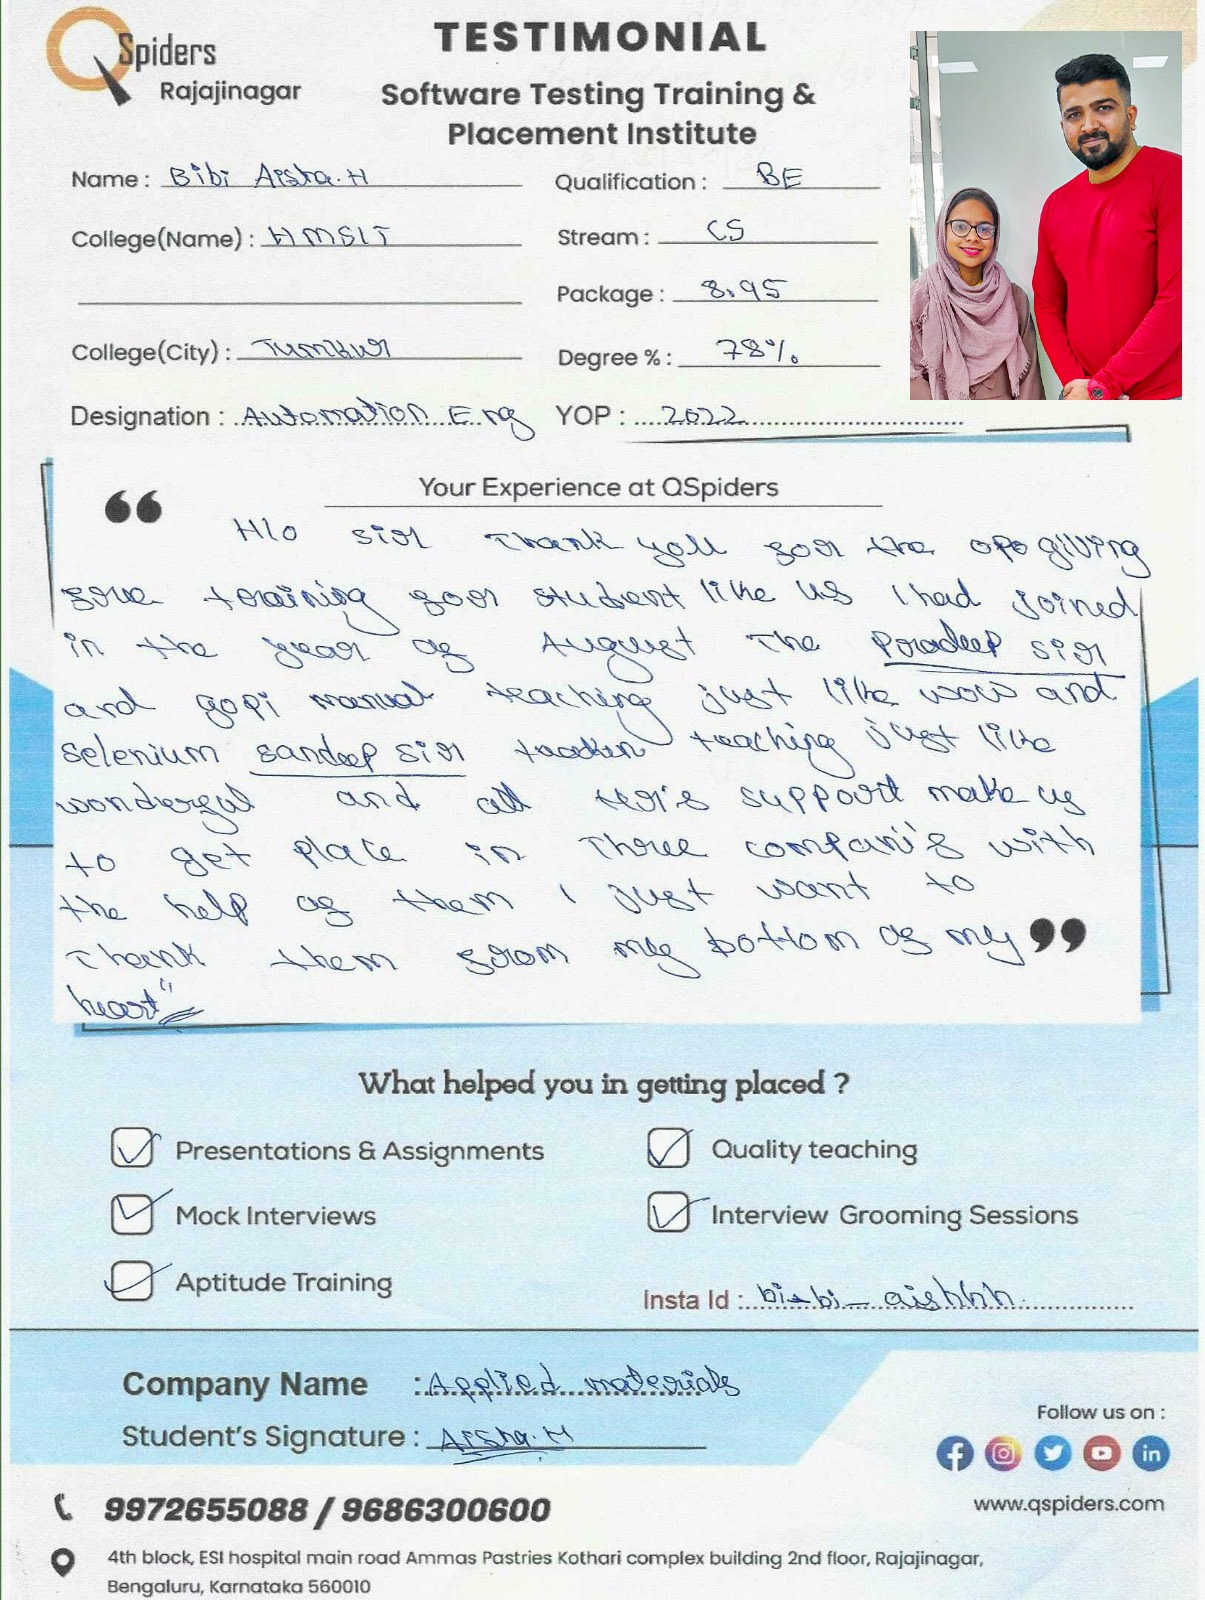 QSpiders
Rajajinagar
TESTIMONIAL
Software Testing Training &
Placement Institute
Name : Bibi Aisha.H
Qualification : BE
College(Name) : HMSIT
Stream : CS
Package : 8.95
College(City) : Tumkur
Degree % : 78%
Designation : Automation Eng
YOP : 2022
Your Experience at QSpiders
“ Hlo sir Thank you for the giving
training for student like us I had joined
in the year of August The Pradeep sir
and gopi manual teaching just like wow and
selenium sandeep sir teaching just like
wonderful and all support make us
to get place in Three compani's with
the help of them I just want to
Thank them from my bottom of my ”
heart"
What helped you in getting placed ?
Presentations & Assignments
Quality teaching
Mock Interviews
Interview Grooming Sessions
Aptitude Training
Insta Id : bi_bi_aishhh
Company Name : Applied materials
Student's Signature : Aisha.H
Follow us on :
www.qspiders.com
9972655088 / 9686300600
4th block, ESI hospital main road Ammas Pastries Kothari complex building 2nd floor, Rajajinagar,
Bengaluru, Karnataka 560010